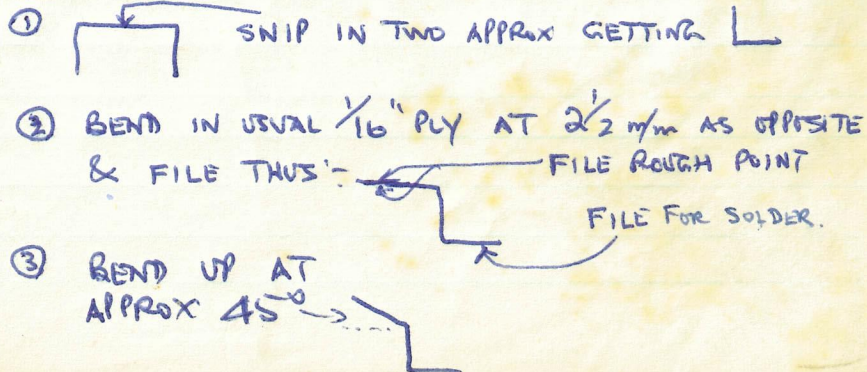 ① SNIP IN TWO APPROX GETTING
② BEND IN USUAL 1/16" PLY AT 2 1/2 m/m AS OPPOSITE
& FILE THUS:- FILE ROUGH POINT
FILE FOR SOLDER.
③ BEND UP AT
APPROX 45°